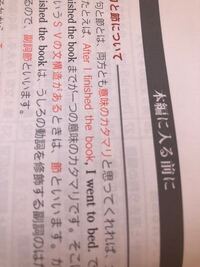 本編に入る前に
句と節について
句と節とは、両方とも意味のカタマリと思ってくれれば、
たとえば、After I finished the book, I went to bed. で
ished the book までが一つの意味のカタマリです。そこに
いうSVの文構造があるときは、節といいます。
nished the book は、うしろの動詞を修飾する副詞のは
るので、副詞節といいます。